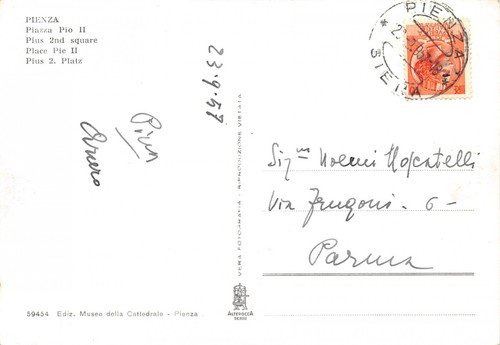 PIENZA
Piazza Pio II
Pius 2nd square
Place Pie II
Pius 2. Platz
PIENZA
SIENA
23.9.57
Sig.na Noemi Moscatelli
Via Zangoni - 6 -
Parma
VERA FOTOGRAFIA - RIPRODUZIONE VIETATA
ALTEROCCA
TERNI
59454 Ediz. Museo della Cattedrale - Pienza